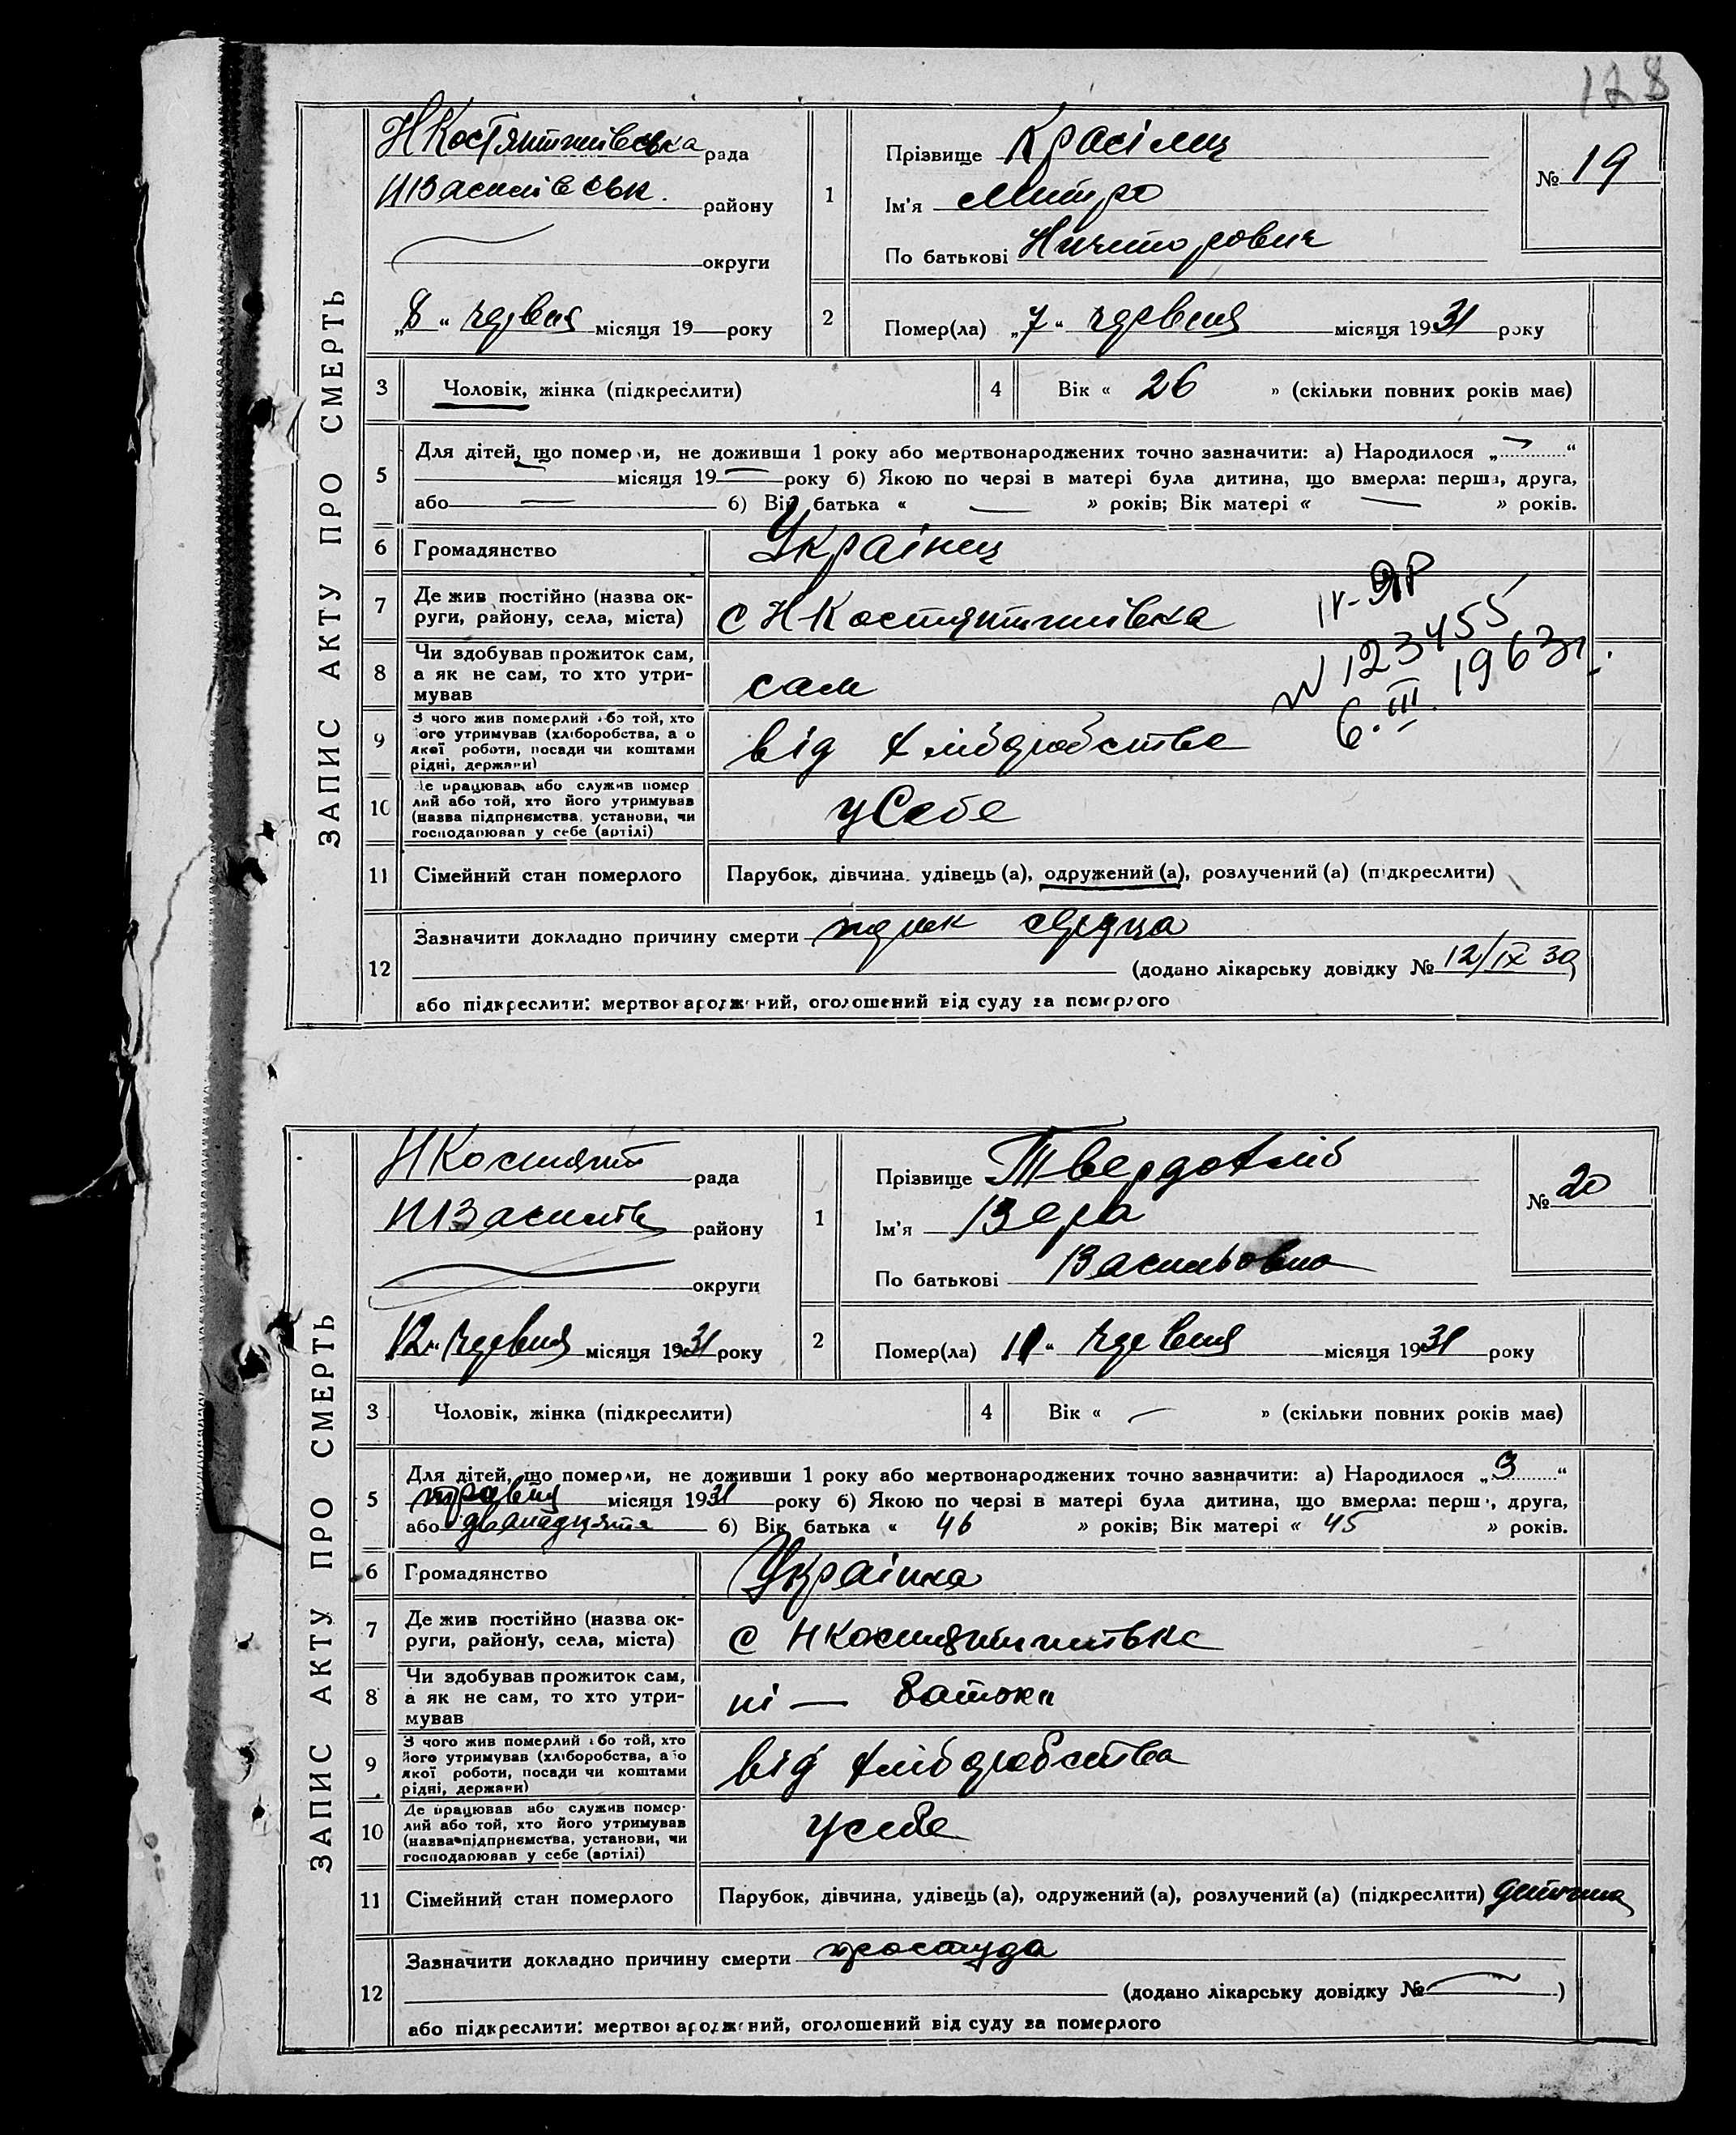 128
ЗАПИС АКТУ ПРО СМЕРТЬ
НКостянтинівська рада
району
округи
„8“ червня місяця 19 року
1
Прізвище
Ім'я Митро
По батькові
№ 19
2
Помер(ла) „7“ червня місяця 1931 року
3 Чоловік, жінка (підкреслити)
4 Вік « 26 » (скільки повних років має)
5
Для дітей, що померли, не доживши 1 року або мертвонароджених точно зазначити: а) Народилося „—“
— місяця 19— року б) Якою по черзі в матері була дитина, що вмерла: перша, друга,
або — б) Вік батька « — » років; Вік матері « — » років.
6 Громадянство Українец
7
Де жив постійно (назва ок-
руги, району, села, міста)
с НКостянтинівка
8
Чи здобував прожиток сам,
а як не сам, то хто утри-
мував
сам
N 123455
6.III. 1963
9
З чого жив померлий або той, хто
його утримував (хліборобства, або
якої роботи, посади чи коштами
рідні, держави)
від хліборобства
10
Де працював або служив помер
лий або той, хто його утримував
(назва підприємства, установи, чи
господарював у себе (артілі)
у Себе
11 Сімейний стан померлого
Парубок, дівчина, удівець (а), одружений (а), розлучений (а) (підкреслити)
12
Зазначити докладно причину смерти сердца
(додано лікарську довідку № 12/IX 30)
або підкреслити: мертвонароджений, оголошений від суду за померлого
ЗАПИС АКТУ ПРО СМЕРТЬ
НКостянт рада
району
округи
12“ червня місяця 1931 року
1
Прізвище Твердохліб
Ім'я Вера
По батькові Васильовна
№ 20
2
Помер(ла) 11“ червня місяця 1931 року
3 Чоловік, жінка (підкреслити)
4 Вік « — » (скільки повних років має)
5
Для дітей, що померли, не доживши 1 року або мертвонароджених точно зазначити: а) Народилося „3“
травня місяця 1931 року б) Якою по черзі в матері була дитина, що вмерла: перша, друга,
або дванадцята б) Вік батька « 46 » років; Вік матері « 45 » років.
6 Громадянство Українка
7
Де жив постійно (назва ок-
руги, району, села, міста)
с НКостянтинівка
8
Чи здобував прожиток сам,
а як не сам, то хто утри-
мував
ні —
9
З чого жив померлий або той, хто
його утримував (хліборобства, або
якої роботи, посади чи коштами
рідні, держави)
від хліборобства
10
Де працював або служив помер-
лий або той, хто його утримував
(назва підприємства, установи, чи
господарював у себе (артілі)
у себе
11 Сімейний стан померлого
Парубок, дівчина, удівець (а), одружений (а), розлучений (а) (підкреслити) дитина
12
Зазначити докладно причину смерти простуда
(додано лікарську довідку № —)
або підкреслити: мертвонароджений, оголошений від суду за померлого